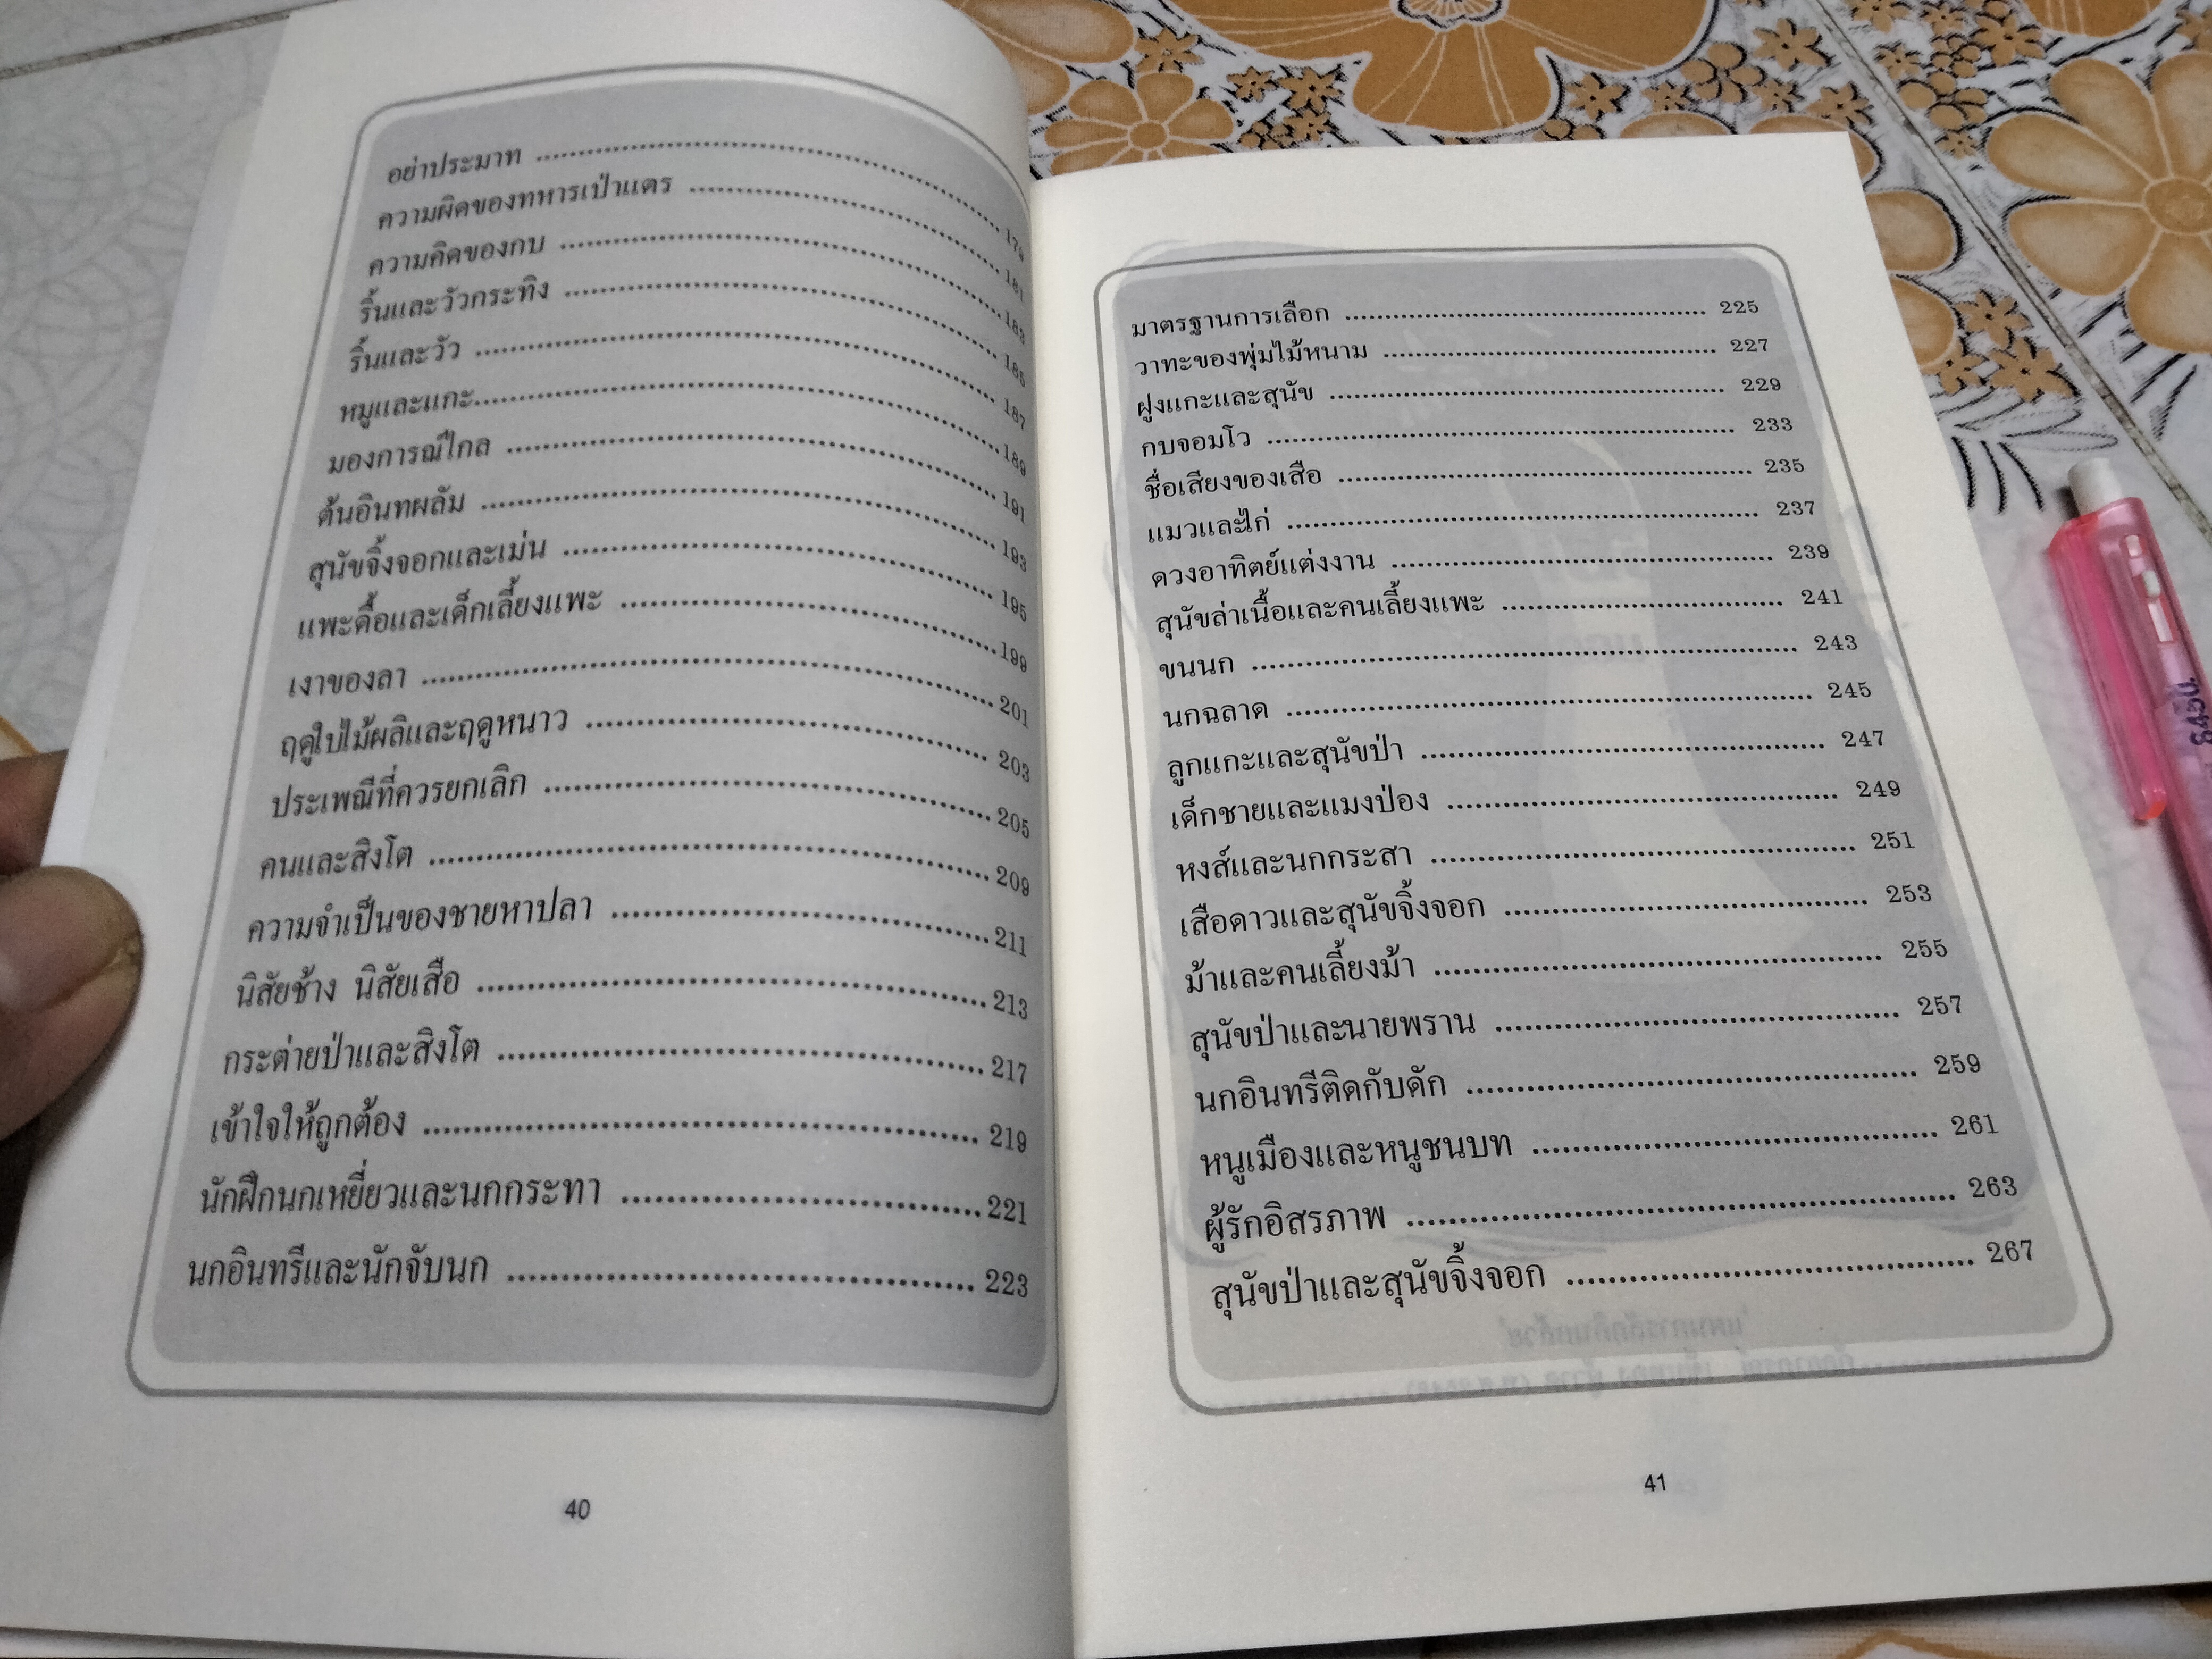 อย่าประมาท ........ 179
ความผิดของทหารเป่าแตร ........ 181
ความคิดของกบ ........ 183
ริ้นและวัวกระทิง ........ 185
ริ้นและวัว ........ 187
หมูและแกะ ........ 189
มองการณ์ไกล ........ 191
ต้นอินทผลัม ........ 193
สุนัขจิ้งจอกและเม่น ........ 195
แพะดื้อและเด็กเลี้ยงแพะ ........ 199
เงาของลา ........ 201
ฤดูใบไม้ผลิและฤดูหนาว ........ 203
ประเพณีที่ควรยกเลิก ........ 205
คนและสิงโต ........ 209
ความจำเป็นของชายหาปลา ........ 211
นิสัยช้าง นิสัยเสือ ........ 213
กระต่ายป่าและสิงโต ........ 217
เข้าใจให้ถูกต้อง ........ 219
นักฝึกนกเหยี่ยวและนกกระทา ........ 221
นกอินทรีและนักจับนก ........ 223
40
มาตรฐานการเลือก ........ 225
วาทะของพุ่มไม้หนาม ........ 227
ฝูงแกะและสุนัข ........ 229
กบจอมโว ........ 233
ชื่อเสียงของเสือ ........ 235
แมวและไก่ ........ 237
ดวงอาทิตย์แต่งงาน ........ 239
สุนัขล่าเนื้อและคนเลี้ยงแพะ ........ 241
ขนนก ........ 243
นกฉลาด ........ 245
ลูกแกะและสุนัขป่า ........ 247
เด็กชายและแมงป่อง ........ 249
หงส์และนกกระสา ........ 251
เสือดาวและสุนัขจิ้งจอก ........ 253
ม้าและคนเลี้ยงม้า ........ 255
สุนัขป่าและนายพราน ........ 257
นกอินทรีติดกับดัก ........ 259
หนูเมืองและหนูชนบท ........ 261
ผู้รักอิสรภาพ ........ 263
สุนัขป่าและสุนัขจิ้งจอก ........ 267
41